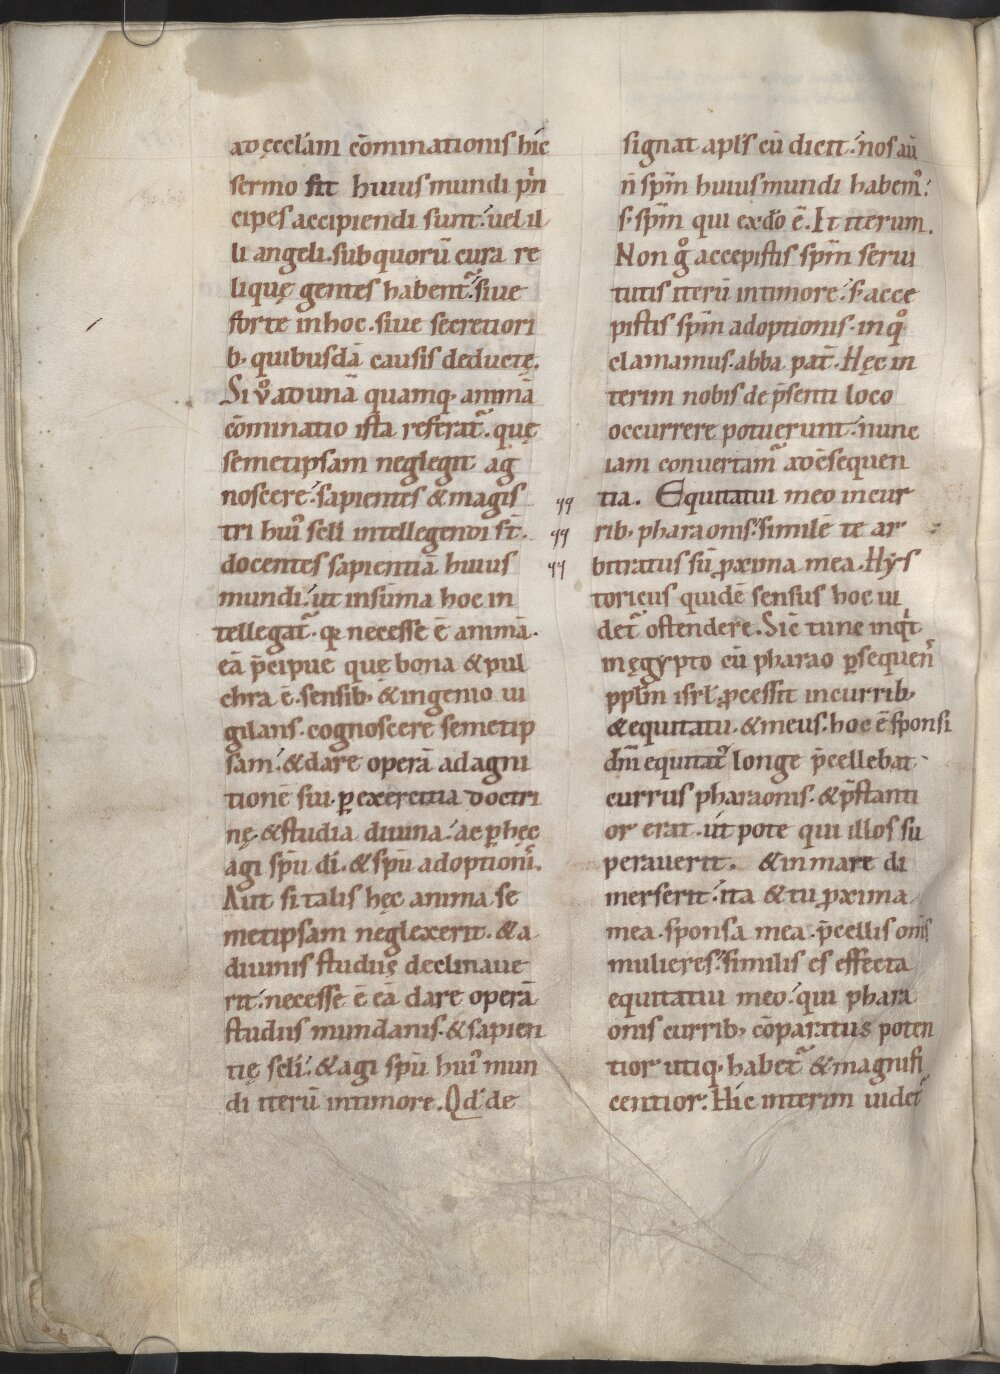 ad ęccl'am cōminationis hic
sermo sit huius mundi p'n
cipes accipiendi sunt. uel il
li angeli. sub quorū cura re
liquę gentes habent᷑. siue
forte in hoc. siue secretiori
b; quibusdā causis deductę.
Si v̊ ad unā quamq; animā
cōminatio ista referat᷑. quę
semetipsam neglegit ag
noscere. sapientes & magis
tri hui' seli intellegendi st̄.
docentes sapientiā huius
mundi. ut in sūma hoc in
tellegat᷑. qr necesse ē animā.
eā p̄cipue quę bona & pul
chra ē. sensib; & ingenio ui
gilans. cognoscere semetip
sam. & dare operā ad agni
tionē sui. ꝑ exercitia doctri
nę. & studia diuina. ac ꝑ hęc
agi sp̄u di. & sp̄u adoptionū.
Aut si talis hęc anima se
metipsam neglexerit. & a
diuinis studiis declinaue
rit. necesse ē eā dare operā
studiis mundanis. & sapien
tię seli. & agi sp̄u hui' mun
di iterū in timore. Qd' de
signat apl's cū dicit. nos aū
n̄ sp̄m huius mundi habem'.
s; sp̄m qui ex do ē. Et iterum.
Non g̊ accepistis sp̄m serui
tutis iterū in timore. s; acce
pistis sp̄m adoptionis. in q̊
clamamus. abba pat̄. Hęc in
terim nobis de p̄senti loco
occurrere potuerunt. nunc
iam conuertam᷑ ad c̄sequen
tia. Equitatui meo in cur
rib; pharaonis. similē te ar
bitratus sū ꝓxima mea. Hys
toricus quidē sensus hoc ui
det᷑ ostendere. Sic tunc inqt
in ęgypto cū pharao ꝑsequen᷑
ppl'm isrl' ꝓcessit in currib;
& equitatu. & meus. hoc ē sponsi
dm̄ equitat' longe p̄cellebat
currus pharaonis. & p̄stanti
or erat. ut pote qui illos su
perauerit. & in mare di
merserit. ita & tu ꝓxima
mea. sponsa mea. p̄cellis om̄s
mulieres. similis es effecta
equitatui meo. qui phara
onis currib; cōparatus poten
tior utiq; habet᷑ & magnifi
centior. Hic interim uidet᷑